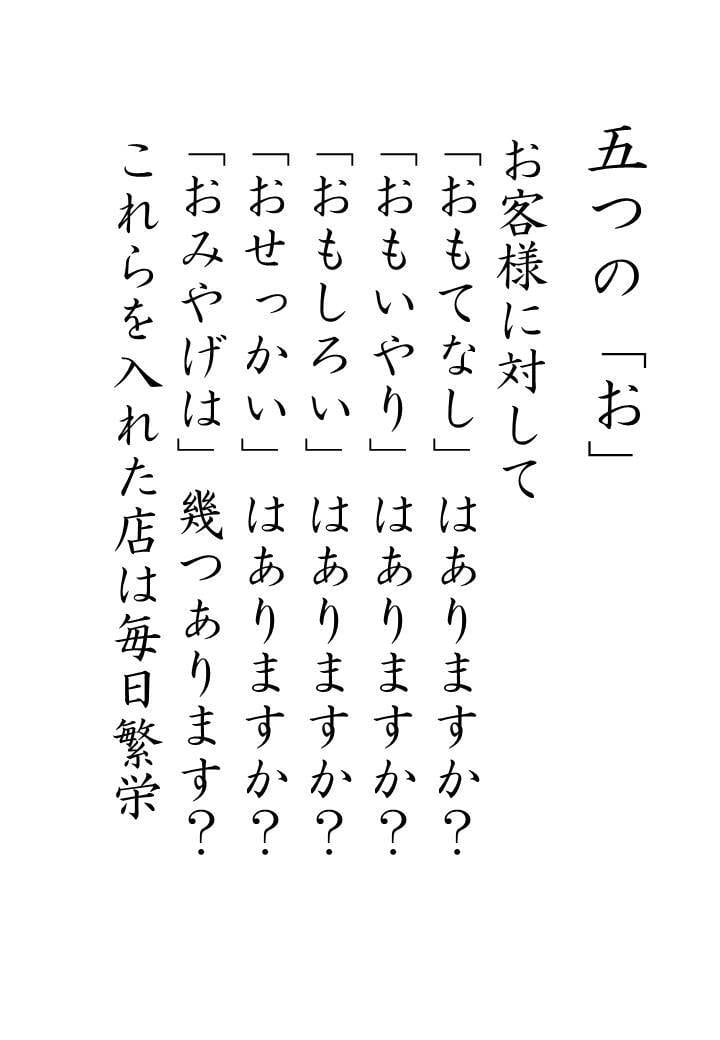 五つの「お」
お客様に対して
「おもてなし」はありますか？
「おもいやり」はありますか？
「おもしろい」はありますか？
「おせっかい」はありますか？
「おみやげは」幾つあります？
これらを入れた店は毎日繁栄